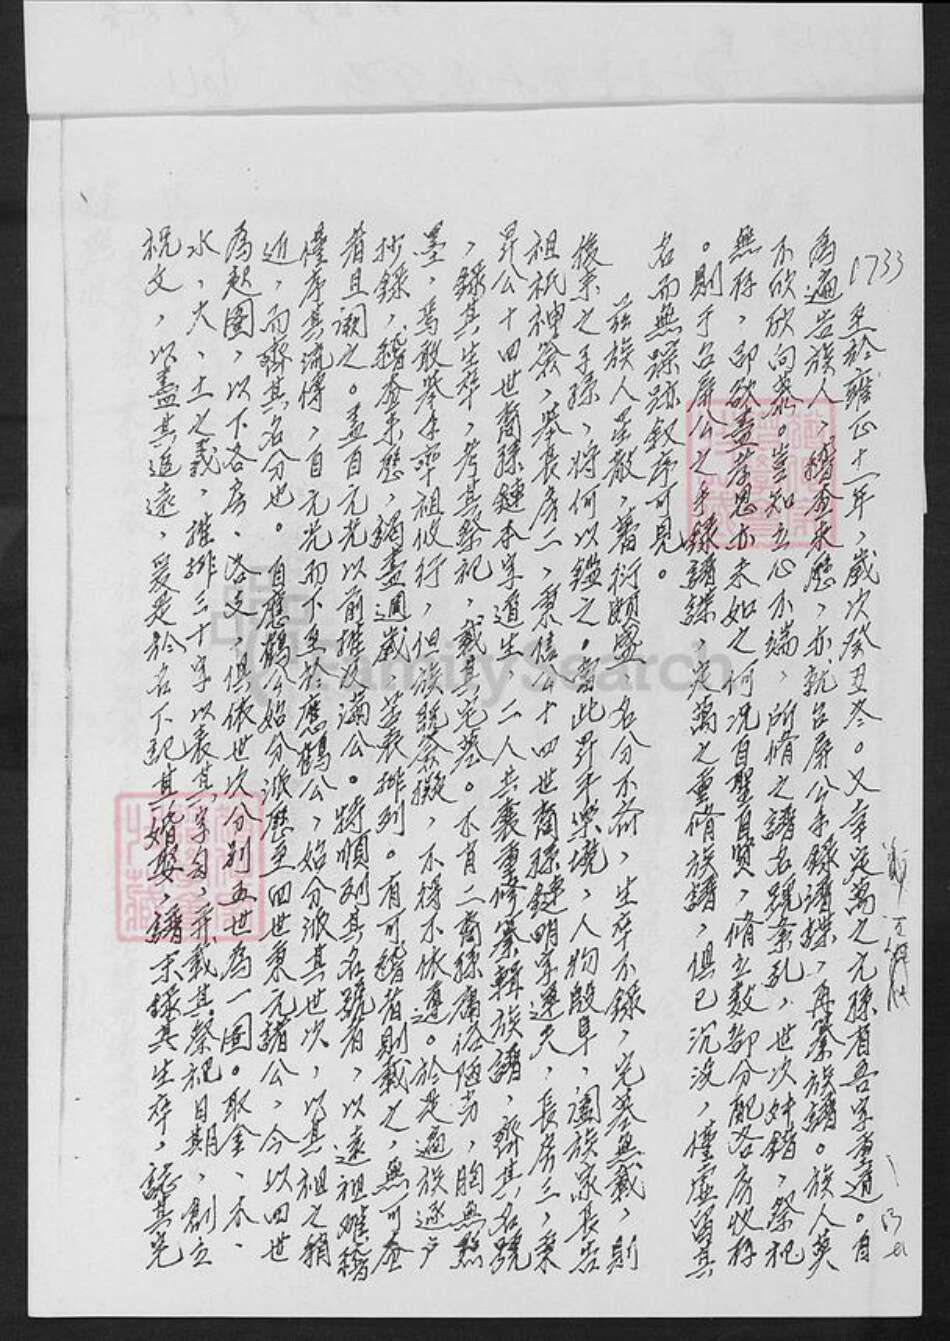 1733
至於雍正十一年，歲次癸丑冬。又幸定萬之元孫者吾字重道。自
為遍告族人，稽查來歷，亦就台屏公手錄譜牒，再纂族譜。族人莫
不欣欣向慕。豈知立心不端，所脩之譜名號紊乱，世次舛錯，祭祀
無存，即欲盡孝思亦未如之何況自聖自賢，脩立数部分配各房收存
。則于台屏公之手錄譜牒，定萬之重脩族譜，俱已沉沒，僅虛留其
名而無踪跡敘序可見。
茲族人星散，蕃衍頗盛，名分不齊，生卒不錄，完墓無載，則
後來之子孫，將何以鑑之。當此昇平樂境，人物殷阜，闔族家長告
祖祇神簽，举長房二，秉信公十四世裔孫鏈明字遵夫，長房三，秉
昇公十四世裔孫鏈本字道生，二人共襄重修纂輯族譜，齊其名號
，錄其生卒，考其祭祀，載其完墓。不肖二裔孫庸洛陋劣，胸無點
墨，焉敢举手率祖攸行，但族眾僉擬，不得不依遵。於是遍族逐戶
抄錄，稽查來歷，竭盡週歲，荃表排列。有可稽者則載之，無可查
者且闕之。盖自元光以前推及滿公。特順列其名號者，以遠祖难稽
僅序其流傳，自元光而下至於應鶴公，始分派其世次，以其祖之稍
近，而齊其名分也。自應鶴公始分派歷至四世秉元諸公，今以四世
為起圖，以下各房、洛支，俱依世次分別五世為一圖。取金、木、
水、火、土之義，推排三十字以表其字勾，并載其祭祀日期，創立
祝文，以盡其追遠，爰是於名下記其婚娶，譜末錄其生卒，誌其完
FamilySearch